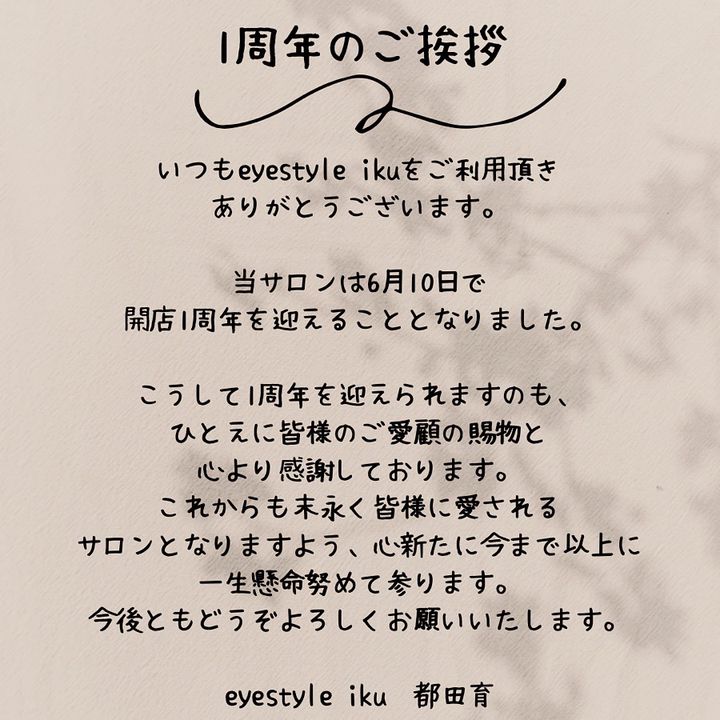 1周年のご挨拶
いつもeyestyle ikuをご利用頂き
ありがとうございます。
当サロンは6月10日で
開店1周年を迎えることとなりました。
こうして1周年を迎えられますのも、
ひとえに皆様のご愛顧の賜物と
心より感謝しております。
これからも末永く皆様に愛される
サロンとなりますよう、心新たに今まで以上に
一生懸命努めて参ります。
今後ともどうぞよろしくお願いいたします。
eyestyle iku 都田育